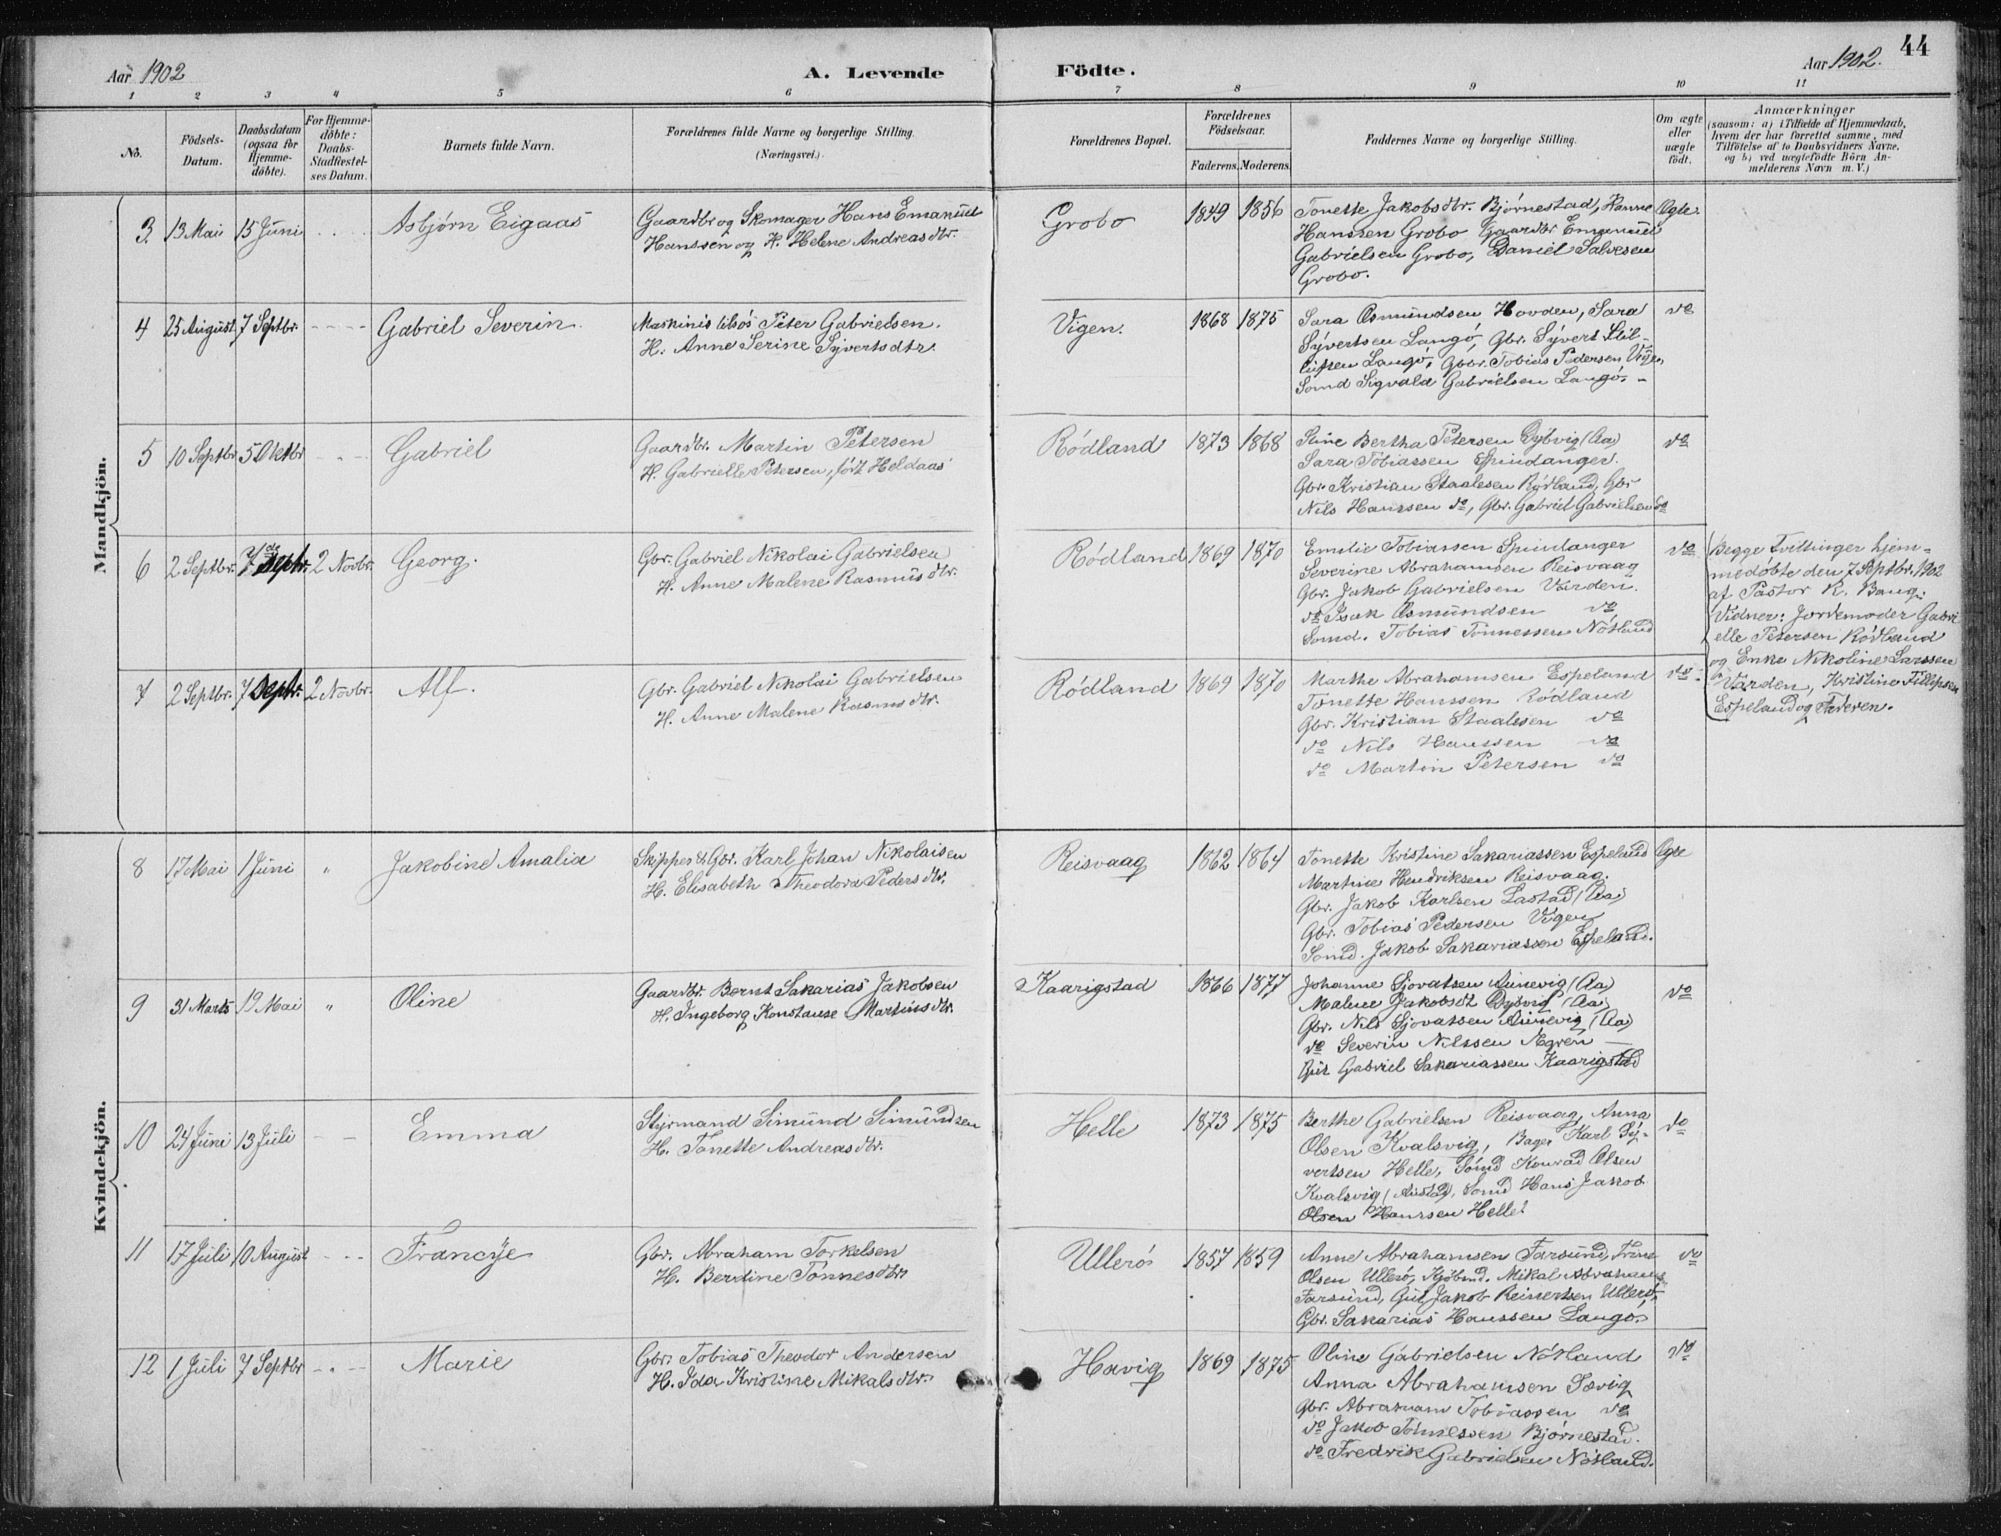 44
Aar 1902
A. Levende Födte.
Aar 1902.
1 2 3 4 5 6 7 8 9 10 11
No.
Födsels-Datum.
Daabsdatum (ogsaa for Hjemme-döbte).
For Hjemme-döbte: Daabs-Stadfæstel-ses Datum.
Barnets fulde Navn.
Forældrenes fulde Navne og borgerlige Stilling.
(Næringsvei.)
Forældrenes Bopæl.
Forældrenes Födselsaar.
Faderens. Moderens.
Faddernes Navne og borgerlige Stilling.
Om ægte eller uægte födt.
Anmærkninger
(saasom: a) i Tilfælde af Hjemmedaab,
hvem der har forrettet samme, med
Tilföielse af to Daabsvidners Navne,
og b) ved uægtefödte Börn An-
melderens Navn m. V.)
Mandkjön.
3. 13 Mai 15 Juni Asbjørn Eigaas
Gaardbr og Skomager Hans Emanuel
Hanssen og H. Helene Andreasdtr.
Grobo 1849 1856
Tonette Jakobsdtr. Bjørnestad, Hanne
Hanssen Grobo Gaardbr Emanuel
Gabrielsen Grobo, Daniel Salvesen
Grobo.
Ægte.
4 25 August 7 Septbr. Gabriel Severin.
Peter Gabrielsen.
H. Anne Serine Syvertsdtr.
Vigen. 1868 1875
Sara Osmundsen Hovden, Sara
Syvertsen Langö, Gbr. Syvert
Langö, Gbr. Tobias Pedersen Vigen,
Sömd Sigvald Gabrielsen Langö. -
do
5 10 Septbr 5 Oktbr Gabriel
Gaardbr. Martin Petersen
H. Gabrielle Petersen, född Heldaas
Rödland 1873 1868
Stine Bertha Petersen Dybvig (Aa)
Sara Tobiassen Spindanger.
Gbr. Kristian Staalesen Rödland, Gbr
Nils Hanssen do, Gbr. Gabriel Gabrielsen do
do
6 2 Septbr. 7de Septr. 2 Novbr. Georg.
Gbr. Gabriel Nikolai Gabrielsen
H. Anne Malene Rasmusdtr.
Rödland 1869 1870
Emilie Tobiassen Spindanger
Severine Abrahamsen Reisvaag
Gbr. Jakob Gabrielsen Varden.
do Isak Osmundsen do
Sömd. Tobias Tönnessen Nötland
do
Begge Tvillinger hjem-
medöbte den 7 Septbr. 1902
af Pastor K. Bang.
Vidner: Jordemoder Gabri
elle Petersen Rödland
og Enke Nikoline Larssen
Varden, Kristine Fillipsen
Espeland og Faderen.
7 2 Septbr. 7 Septr. 2 Novbr. Alf.
Gbr. Gabriel Nikolai Gabrielsen
H. Anne Malene Rasmusdtr.
Rödland 1869 1870
Marthe Abrahamsen Espeland
Tonette Hanssen Rödland
Gbr. Kristian Staalesen do
do Nils Hanssen do
do Martin Petersen do
do
Kvindekjön.
8 17 Mai 1 Juni " Jakobine Amalia
Skipper & Gbr. Karl Johan Nikolaisen
H. Elisabeth Theodora Pedersdtr.
Reisvaag 1862 1864
Tonette Kristine Sakariassen Espeland
Martine Hendriksen Reisvaag.
Gbr. Jakob Karlsen Lastad (Aa)
Gbr. Tobias Pedersen Vigen
Sömd. Jakob Sakariassen Espeland.
Ægte
9 31 Marts 19 Mai " Oline
Gaardbr. Bernt Sakarias Jakobsen
H. Ingeborg Konstanse Martinsdtr.
Kaarigstad 1866 1877
Johanne Sjovatsen Aunevig (Aa)
Malene Jakobsdt Dybvig (Aa)
Gbr. Nils Sjovatsen Aunevig (Aa)
do Severin Nilssen
Gut Gabriel Sakariassen Kaarigstad
do
10 24 Juni 13 Juli Emma
Styrmand Simund Simundsen
H. Tonette Andreasdtr.
Helle 1873 1875
Berthe Gabrielsen Reisvaag, Anna
Olsen Kvalsvig, Bager Karl Sy-
vertsen Helle, Sömd Konrad Olsen
Kvalsvig (Austad), Sömd Hans Jakob
Olsen Hanssen Helle.
do
11 17 Juli 10 August Francye
Gbr. Abraham Torkelsen
H. Berdine Tönnesdtr.
Ullerö 1857 1859
Anne Abrahamsen Farsund, Trine
Olsen Ullerö, Kjöbmd. Mikal Abrahams
Farsund, Gut Jakob Reinertsen Ullerö,
Gbr. Sakarias Hanssen Langö.
do
12 1 Juli 7 Septbr Marie
Gbr. Tobias Theodor Andersen
H. Ida Kristine Mikalsdtr.
Havig 1869 1875
Oline Gabrielsen Nötland
Anna Abrahamsen Sævig
Gbr. Abraham Tobiassen do
do Jakob Tönnesen Bjørnestad.
do Fredrik Gabrielsen Nötland.
do